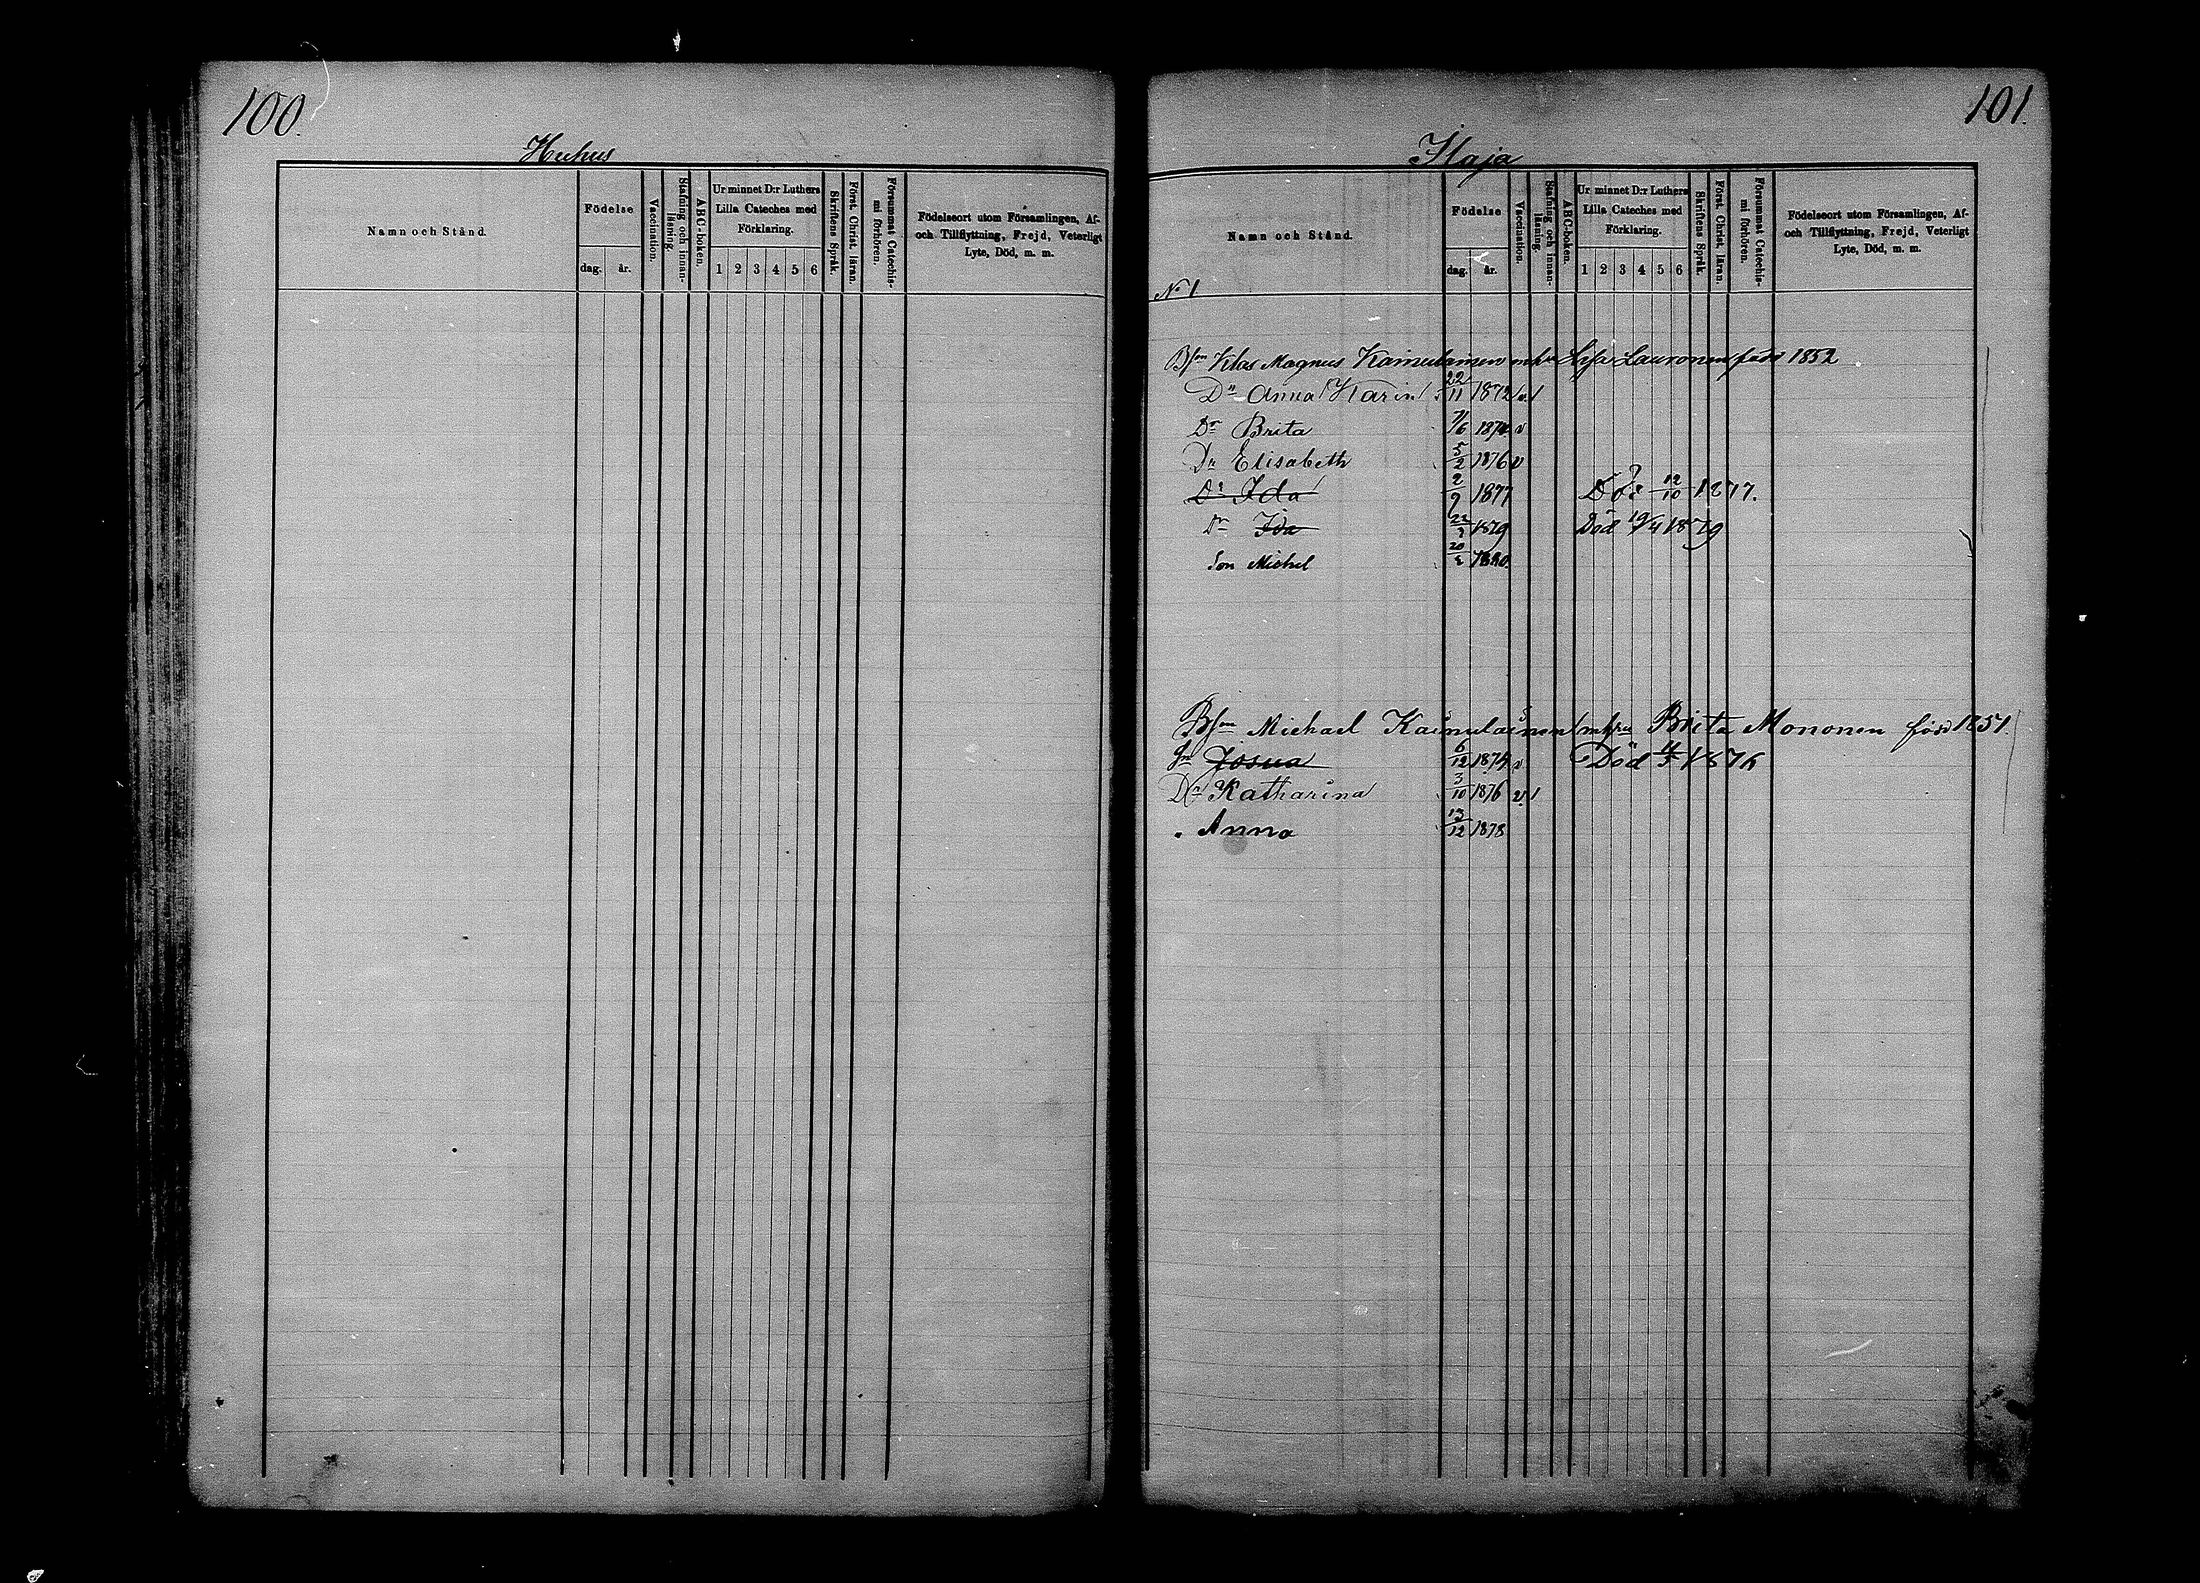 100.
Huhus
Namn och Stånd.
Födelse
dag.
år.
Vaccination.
Stafning och innan-
läsning.
ABC-boken.
Ur minnet D:r Luthers
Lilla Cateches med
Förklaring.
1 2 3 4 5 6
Skriftens Språk.
Först. Christ. läran.
Försummat Catechis-
mi förhören.
Födelseort utom Församlingen, Af-
och Tillflyttning, Frejd, Veterligt
Lyte, Död, m. m.
101.
Ilaja
Namn och Stånd.
Födelse
dag.
år.
Vaccination.
Stafning och innan-
läsning.
ABC-boken.
Ur minnet D:r Luthers
Lilla Cateches med
Förklaring.
1 2 3 4 5 6
Skriftens Språk.
Först. Christ. läran.
Försummat Catechis-
mi förhören.
Födelseort utom Församlingen, Af-
och Tillflyttning, Frejd, Veterligt
Lyte, Död, m. m.
No 1
Bson Klas Magnus Kaimulainen Lauronen född 1852
Dr Anna Karin 22/11 1872 v 1
Dr Brita 7/6 1874 v
Dr Elisabeth 5/2 1876 v
Dr Ida 2/9 1877 Död 12/10 1877.
Dr Ida 1879 Död 19/4 1879
Son Michel 1880.
Bson Michael Kaimulainen Brita Mononen född 1851.
Sn Josua 6/12 1874 v Död 1876
Dr Katharina 3/10 1876 v 1
" Anna 13/12 1878